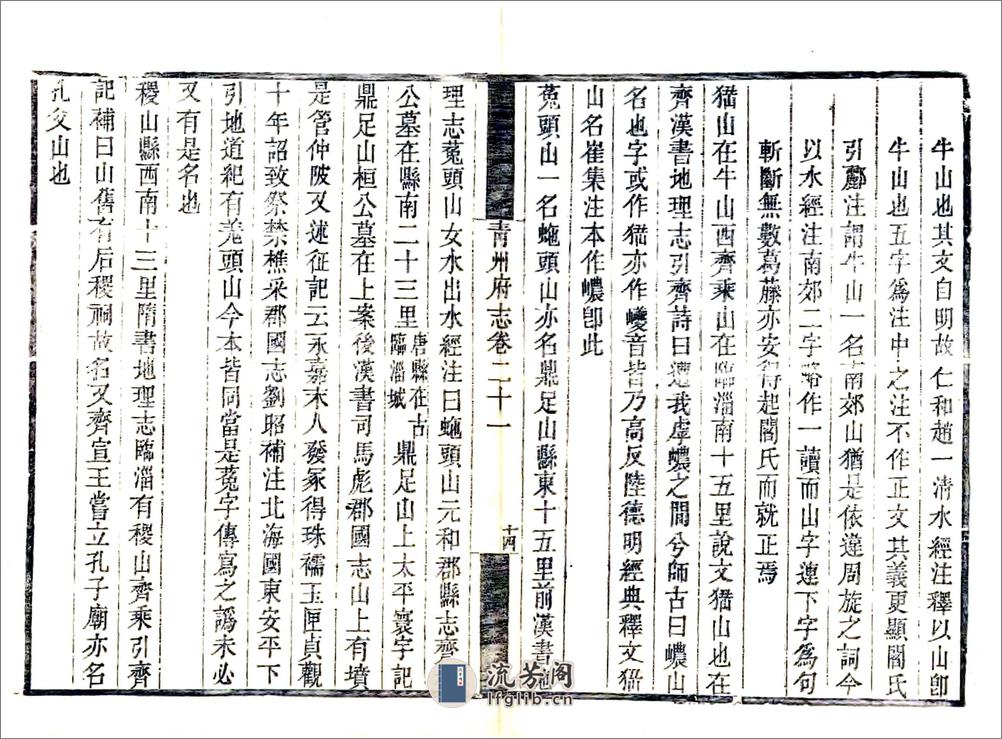 牛山也其文自明故仁和趙一淸水經注釋以山卽
牛山也五字爲注中之注不作正文其義更顯閻氏
引酈注謂牛山一名南郊山猶是依違周旋之詞今
以水經注南郊二字略作一讀而山字連下字爲句
斬斷無數葛藤亦安得起閻氏而就正焉
猺山在牛山西齊乘山在臨淄南十五里說文猺山也在
齊漢書地理志引齊詩曰遭我虖嶩之間兮師古曰嶩山
名也字或作猺亦作巎音皆乃高反陸德明經典釋文猺
山名崔集注本作嶩卽此
菟頭山一名虵頭山亦名鼎足山縣東十五里前漢書地
理志菟頭山女水出水經注曰虵頭山元和郡縣志齊
公墓在縣南二十三里唐縣在古臨淄城鼎足山上太平寰宇記
鼎足山桓公墓在上案後漢書司馬彪郡國志山上有墳
是管仲陂又述征記云永嘉末人發冢得珠襦玉匣貞觀
十年詔致祭禁樵采郡國志劉昭補注北海國東安平下
引地道紀有羌頭山今本皆同當是菟字傳寫之譌未必
又有是名也
稷山縣西南十三里隋書地理志臨淄有稷山齊乘引齊
記補曰山舊有后稷祠故名又齊宣王嘗立孔子廟亦名
孔父山也
青州府志卷二十一
十四
流芳閣
lfglib.cn